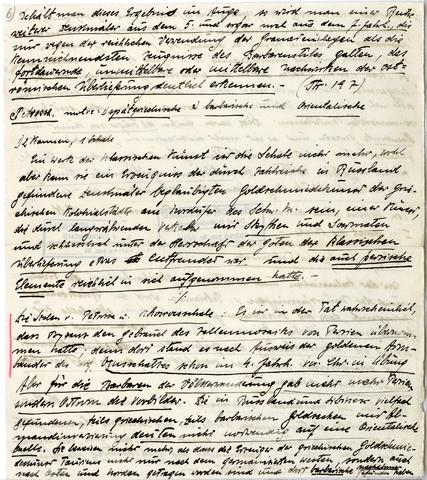 6) Behält man dieses Ergebnis im Auge, so wird man einer Reihe
weiterer Denkmäler aus dem 5. und sogar noch aus dem 7. Jahrh., die
nur wegen der reichlichen Verwendung der Granateinlagen als die
kennzeichnendsten Zeugnisse des Barbarenstiles galten, das
fortdauernde, unmittelbare oder mittelbare nachwirken der ost-
römischen Überlieferung deutlich erkennen. – (Str. 197)
Petrossa, Spätgriechische, barbarische und Orientalische
2 Kannen, 1 Schale
Ein Werk der klassischen Kunst ist die Schale nicht mehr, wohl
aber kann sie ein Erzeugnis der durch zahlreiche in Russland
gefundene Denkmäler beglaubigten Goldschmiedekunst der grie-
chischen Kolonialstädte am Nordufer des Schw. M. sein, einer Kunst
die durch langwährenden Verkehr mit Skythen und Sarmaten
und schliesslich unter der Herrschaft der Goten der klassischen
Überlieferung etwas entfremdet war und die auch persische
Elemente reichlich in sich aufgenommen hatte. –
Die Schalen v. Petrossa u. Khosroesschale. Es ist in der Tat wahrscheinlich,
dass Byzanz den Gebrauch des Zellenmosaiks von Persien übernom-
men hatte, denn dort stand es nach Ausweis der goldenen Arm-
bänder des Oxusschatzes schon im 4. Jahrh. vor Chr. in Übung
Aber für die Barbaren der Völkerwanderung gab nicht mehr Persien
sondern Ostrom die Vorbilder. Die in Russland und Sibirien vielfach
gefundenen, teils griechischen, teils barbarischen Goldsachen mit Al-
mandinverzierung deuten nicht notwendig auf eine Orientalische
Quelle. Sie beweisen nicht mehr, als dass die Erzeugnisse der griechischen Goldschmie-
dekunst Tauriens nicht nur nach dem germanischen Westen sondern auch
nach Osten und Norden getragen worden sind und dort barbarische Nachahmer gefunden haben